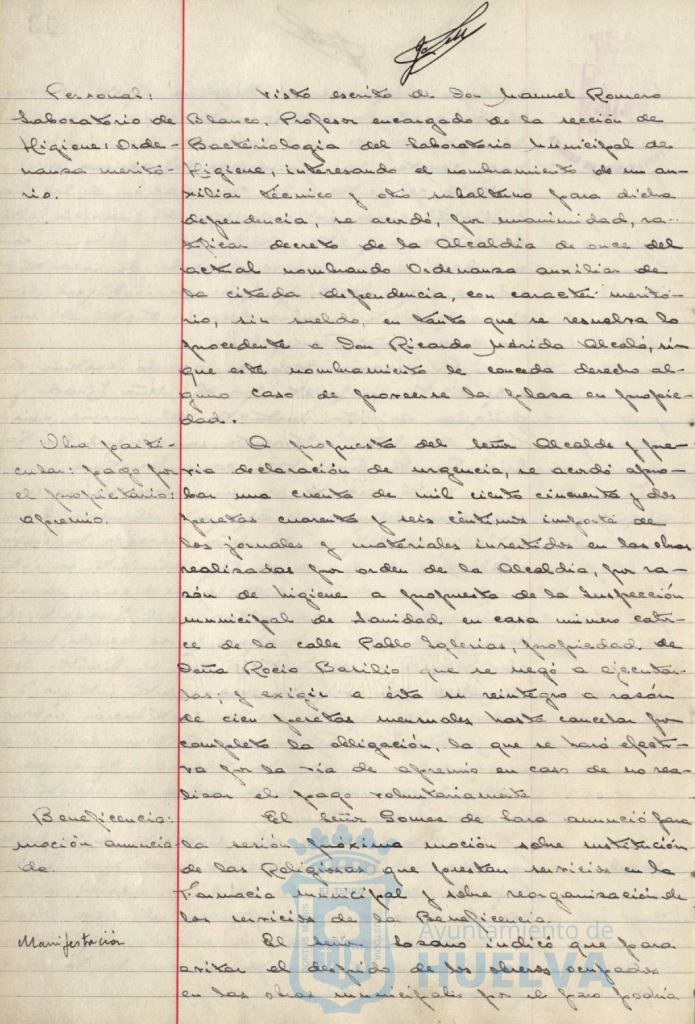 Personal:
Laboratorio de
Higiene: Orde-
nanza meritó-
rio.
Visto escrito de Don Manuel Romero
Blanco, Profesor encargado de la sección de
Bacteriologia del Laboratorio Municipal de
Higiene, interesando el nombramiento de un au-
xiliar técnico y otro subalterno para dicha
dependencia, se acordó, por unanimidad, ra-
tificar decreto de la Alcaldia de once del
actual nombrando Ordenanza auxiliar de
la citada dependencia, con caracter meritó-
rio, sin sueldo, en tanto que se resuelva lo
procedente a Don Ricardo Mérida Alcalá, sin
que este nombramiento le conceda derecho al-
guno caso de proveerse la plaza en propie-
dad.
Obra parti-
cular: pago por
el propietario:
apremio.
A propuesta del Señor Alcalde y pre-
via declaración de urgencia, se acordó apro-
bar una cuenta de mil ciento cincuenta y dos
pesetas cuarenta y seis céntimos importe de
los jornales y materiales invertidos en las obras
realizadas por orden de la Alcaldia, por ra-
zón de higiene a propuesta de la Inspección
municipal de Sanidad en casa número cator-
ce de la calle Pablo Iglesias, propiedad de
Doña Rocio Basilio que se negó a ejecutar-
las; y exigir a ésta su reintegro a razón
de cien pesetas mensuales hasta cancelar por
completo la obligación, la que se hará efecti-
va por la via de apremio en caso de no rea-
lizar el pago voluntariamente
Beneficencia:
moción anuncia-
da.
El Señor Gomez de Lara anunció para
la sesión próxima moción sobre sustitución
de las Religiosas que prestan servicios en la
Farmacia municipal y sobre reorganización de
los servicios de la Beneficencia.
Manifestación
El Señor Lozano indicó que para
evitar el despido de los obreros ocupados
en las obras municipales por el paro podria
Ayuntamiento de
HUELVA